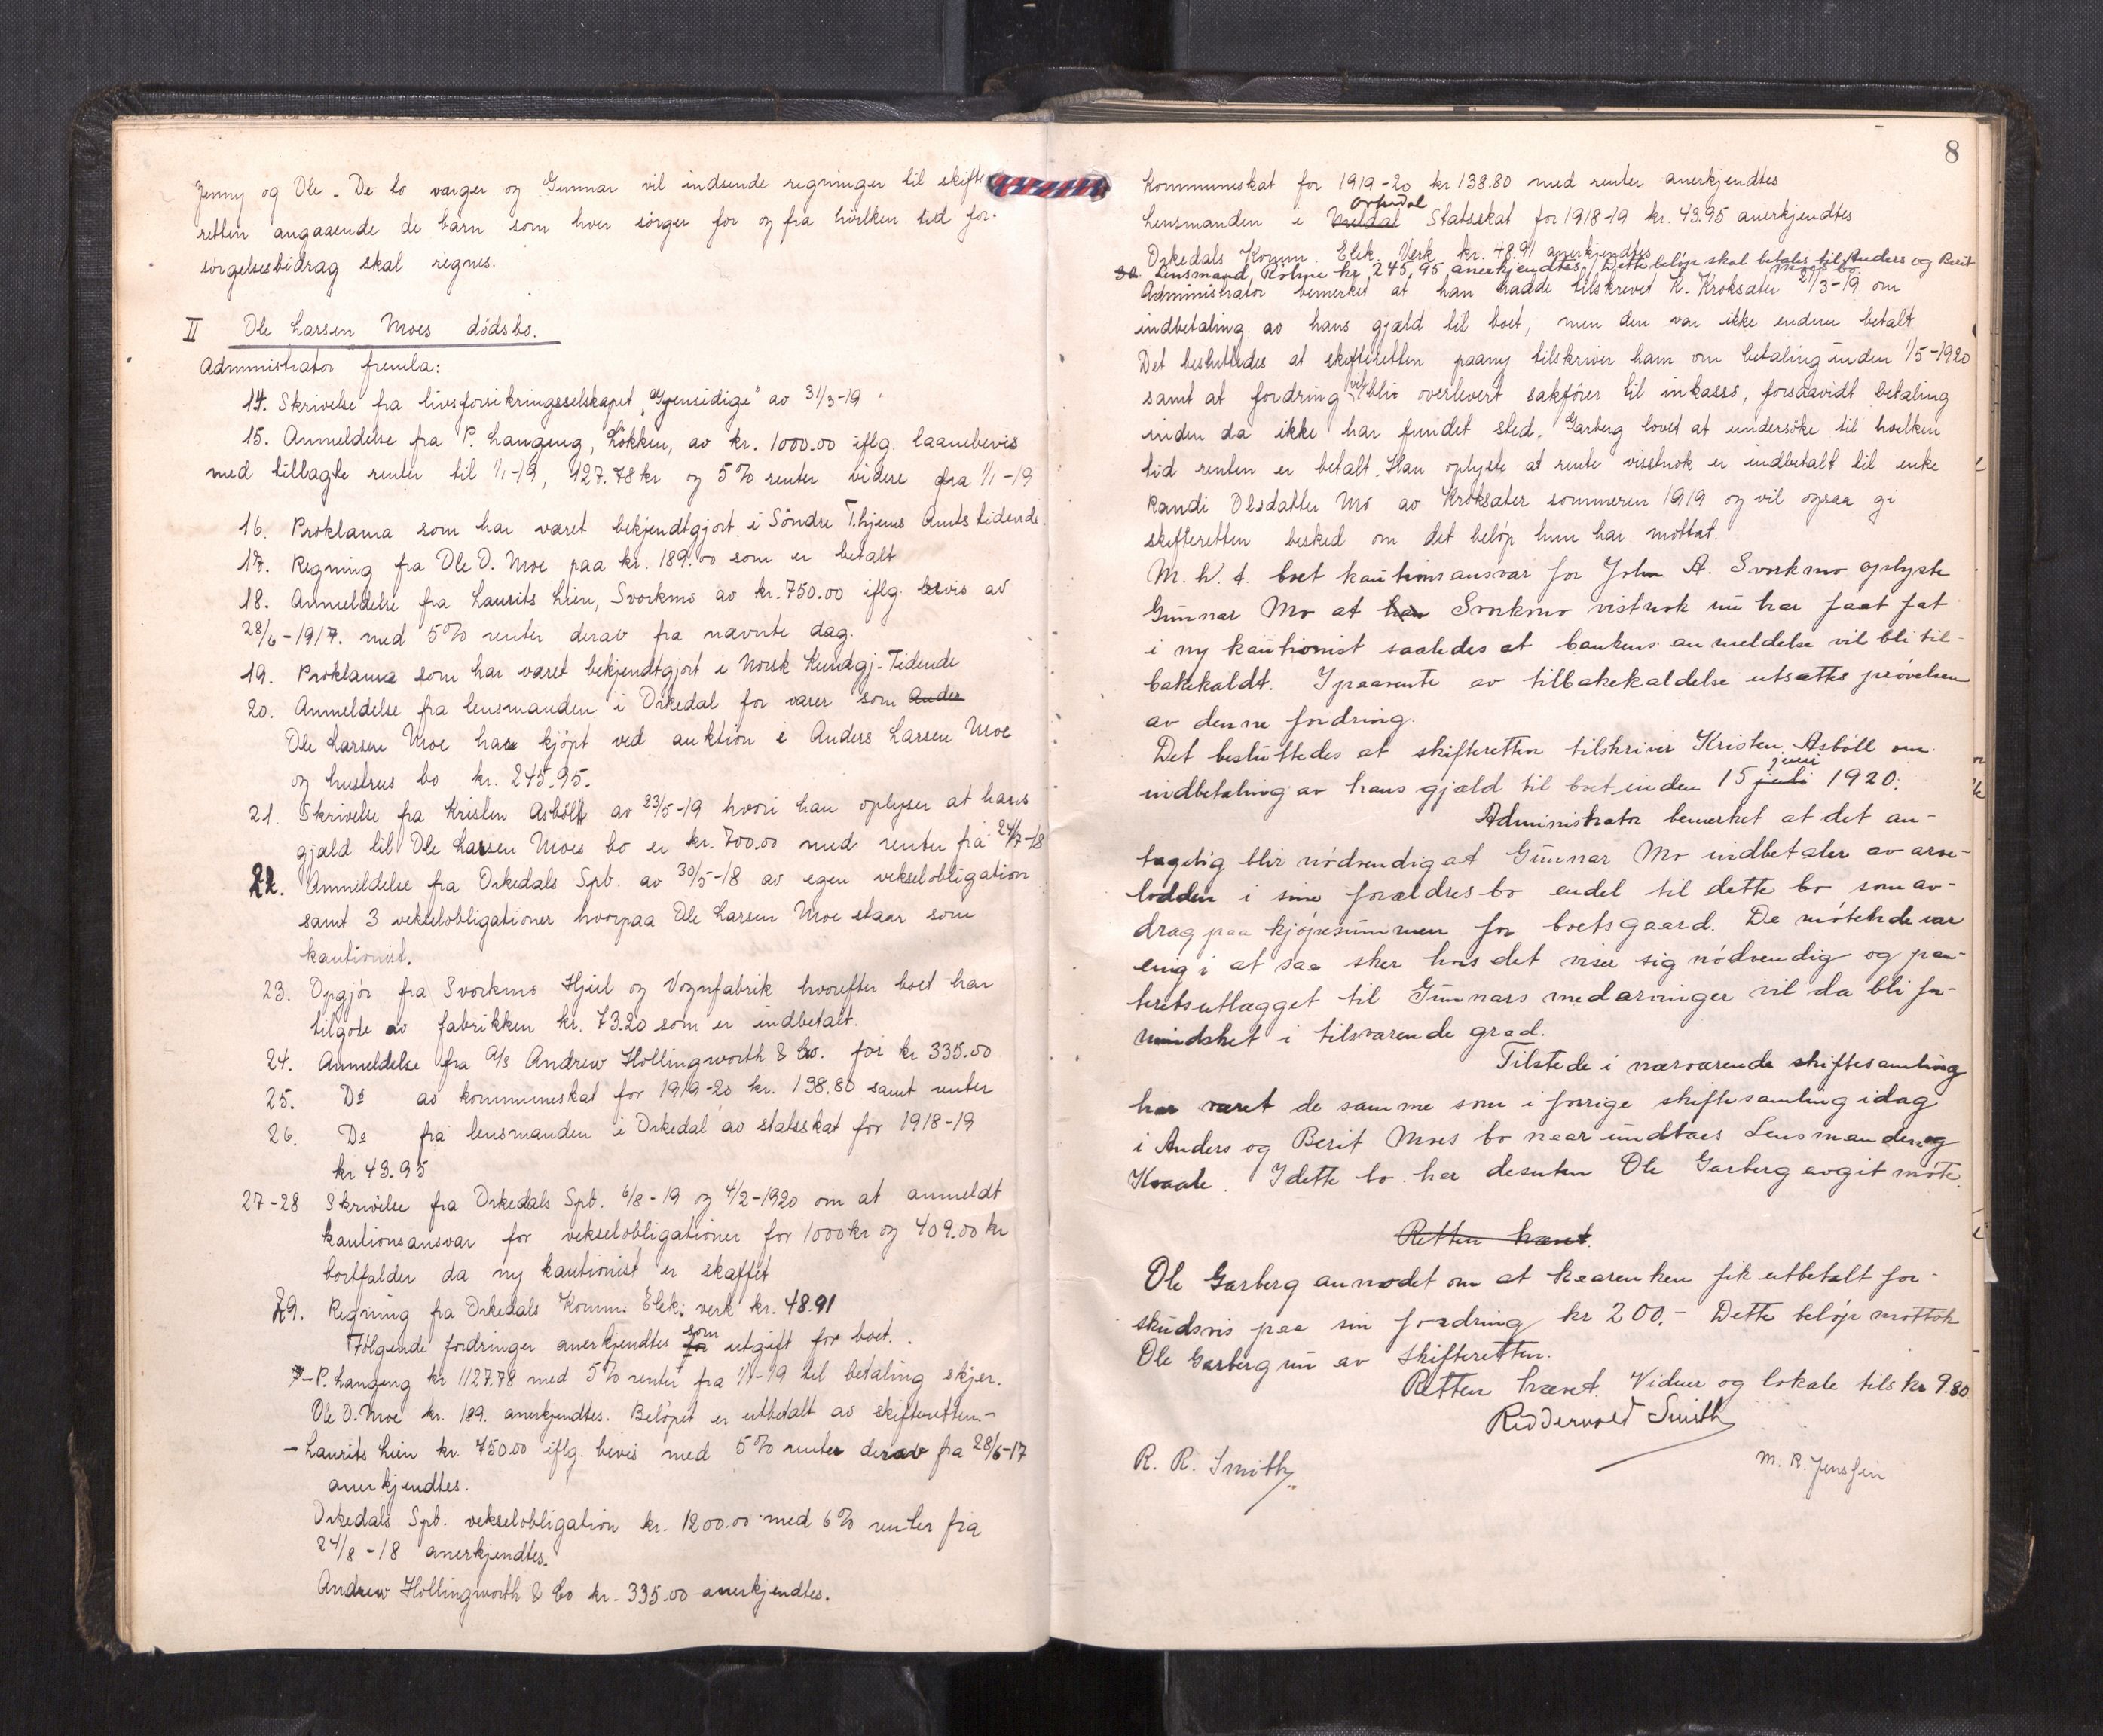 Jenny og Ole. De to værger og Gunnar vil indsende regninger til skifte
retten angaaende de barn som hver sörger for og fra hvilken tid for-
sörgelsesbidrag skal regnes.
II Ole Larsen Moes dödsbo.
Administrator fremla:
14. Skrivelse fra livsforsikringsselskapet "Gjensidige" av 31/3-19
15. Anmeldelse fra P. Langeng, Lökken, av kr. 1000.00 iflg. laanebevis
med tillagte renter til 1/1-19, 127.78 kr og 5% renter videre fra 1/1-19
16. Proklama som har været bekjendtgjort i Söndre T.hjems Amtstidende.
17. Regning fra Ole O. Moe paa kr. 189.00 som er betalt
18. Anmeldelse fra Laurits Lien, Svorkmo av kr. 750.00 iflg. bevis av
28/6-1917. med 5% renter derav fra nævnte dag.
19. Proklama som har været bekjendtgjort i Norsk Kundgj.-Tidende
20. Anmeldelse fra lensmanden i Orkedal for varer som Ander
Ole Larsen Moe har kjöpt ved auktion i Anders Larsen Moe
og hustrus bo kr. 245.95.
21. Skrivelse fra Kristen Asböll av 23/5-19 hvori han oplyser at hans
gjæld til Ole Larsen Moes bo er kr. 700.00 med renter fra 24/7-18
22. Anmeldelse fra Orkedals Spb. av 30/5-18 av egen vekselobligation
samt 3 vekselobligationer hvorpaa Ole Larsen Moe staar som
kautionist.
23. Opgjör fra Svorkmo Hjul og Vognfabrik hvorefter boet har
tilgode av fabrikken kr. 73.20 som er indbetalt.
24. Anmeldelse fra A/S Andrew Hollingworth & Co. for kr 335.00
25. Do av kommuneskat for 1919-20 kr. 138.80 samt renter
26. Do fra lensmanden i Orkedal av statsskat for 1918-19
kr 43.95
27-28 Skrivelse fra Orkedals Spb. 6/8-19 og 4/2-1920 om at anmeldt
kautionsansvar for vekselobligationer for 1000 kr og 409.00 kr
bortfalder da ny kautionist er skaffet
29. Regning fra Orkedals Komm. Elek. verk kr. 48.91
Følgende fordringer anerkjendtes for som utgift for boet.
- P. Langeng kr 1127.78 med 5% renter fra 1/1-19 til betaling skjer.
Ole O. Moe kr. 189. anerkjendtes. Belöpet er utbetalt av skifteretten.-
- Laurits Lien kr. 750.00 iflg. bevis med 5% renter derav fra 28/6-17
anerkjendtes.
Orkedals Spb. vekselobligation kr. 1200.00 med 6% renter fra
24/8-18 anerkjendtes.
Andrew Hollingworth & Co kr. 335.00 anerkjendtes.
8
Kommuneskat for 1919-20 kr 138.80 med renter anerkjendtes
Lensmanden i Meldal Orkedal Statsskat for 1918-19 kr. 43.95 anerkjendtes
Orkedals Komm. Elek. Verk kr. 48.91 anerkjendtes
Lensmand Rolme kr 245,95 anerkjendtes/ Dette beløp skal betales til Anders og Berit
Moes bo
Administrator bemerket at han hadde tilskrevet K. Kroksæter 21/3-19 om
indbetaling av hans gjæld til boet, men den var ikke endnu betalt
Det besluttedes at skifteretten paany tilskriver ham om betaling inden 1/5-1920
samt at fordring vil bli overlevert sakförer til inkasso, forsaavidt betaling
inden da ikke har fundet sted. Garberg lovet at undersöke til hvilken
tid renten er betalt. Han oplyste at rente visstnok er indbetalt til enke
Randi Olsdatter Mo av Kroksæter sommeren 1919 og vil ogsaa gi
skifteretten besked om det belöp hun har mottat.
M. h. t. boet kautionsansvar for John A. Svorkmo oplyste
Gunnar Mo at han Svorkmo vistnok nu har faat fat
i ny kautionist saaledes at bankens anmeldelse vil bli til-
bakekaldt. I paavente av tilbakekaldelse utsættes prövelsen
av denne fordring.
Det besluttedes at skifteretten tilskriver Kristen Asböll om
indbetaling av hans gjæld til boet inden 15 juli juni 1920.
Administrator bemerket at det an-
tagelig blir nödvendig at Gunnar Mo indbetaler av arve-
lodden i sine forældres bo endel til dette bo som av-
drag paa kjöpesummen for boets gaard. De mötende var
enig i at saa sker hvis det viser sig nödvendig og pan-
teretsutlægget til Gunnars medarvinger vil da bli for-
mindsket i tilsvarende grad.
Tilstede i nærværende skiftesamling
har været de samme som i forrige skiftesamling idag
i Anders og Berit Moes bo naar undtaes Lensmanden og
Kvaale. I dette bo har desuten Ole Garberg avgit möte.
Retten hævet.
Ole Garberg anmodet om at kaarenken fik utbetalt for-
skudsvis paa sin fordring kr 200,- Dette belöp mottok
Ole Garberg nu av skifteretten.
Retten hævet. Vidner og lokale tils kr 9.80
Riddervold Smith
R. R. Smith
M. R. Jenssen